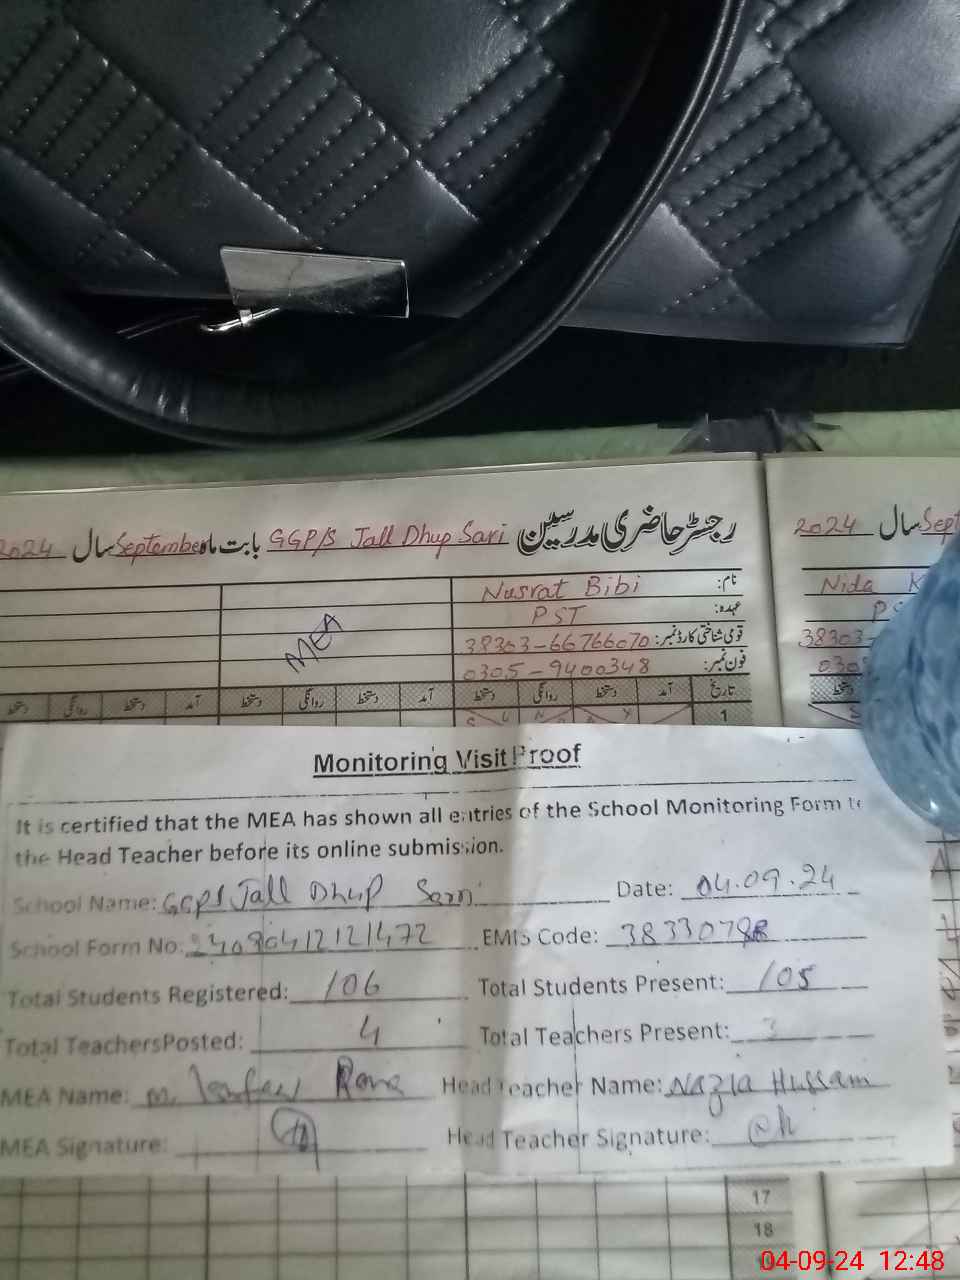 رجسٹر حاضری مدرسین GGP/S Jall Dhup Sari بابت ماہ September سال 2024
سال 2024 Sept
نام: Nusrat Bibi
عہدہ: PST
قومی شناختی کارڈ نمبر: 38303-66766070
فون نمبر: 0305-9400348
Nida K
38303-
MEA
تاریخ آمد دستخط روانگی دستخط آمد دستخط روانگی دستخط آمد دستخط روانگی دستخط
1
Monitoring Visit Proof
It is certified that the MEA has shown all entries of the School Monitoring Form to
the Head Teacher before its online submission.
School Name: GGPS Jall Dhup Sari Date: 04.09.24
School Form No: EMIS Code:
Total Students Registered: 106 Total Students Present: 105
Total TeachersPosted: 4 Total Teachers Present: 3
MEA Name: M. Rana Head Teacher Name: Nazia Hussain
MEA Signature: Head Teacher Signature:
17
18
04-09-24 12:48